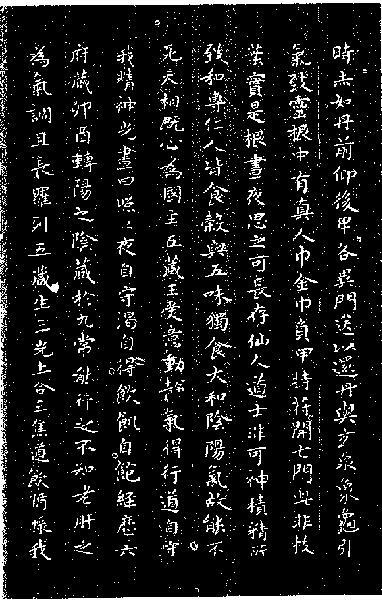 時志如丹前仰後卑各異門送以還丹與玄泉象龜引
氣致靈根中有真人巾金巾負甲持符開七門此非枝
葉實是根晝夜思之可長存仙人道士非可神積精所
致和專仁人皆食穀與五味獨食大和陰陽氣故能不
死天相既心為國主五藏王受意動靜氣得行道自守
我精神光晝日照〻夜自守渴自得飲飢自飽經歷六
府藏卯酉轉陽之陰藏於九常能行之不知老肝之
為氣調且長羅列五藏生三光上合三焦道飲漿我